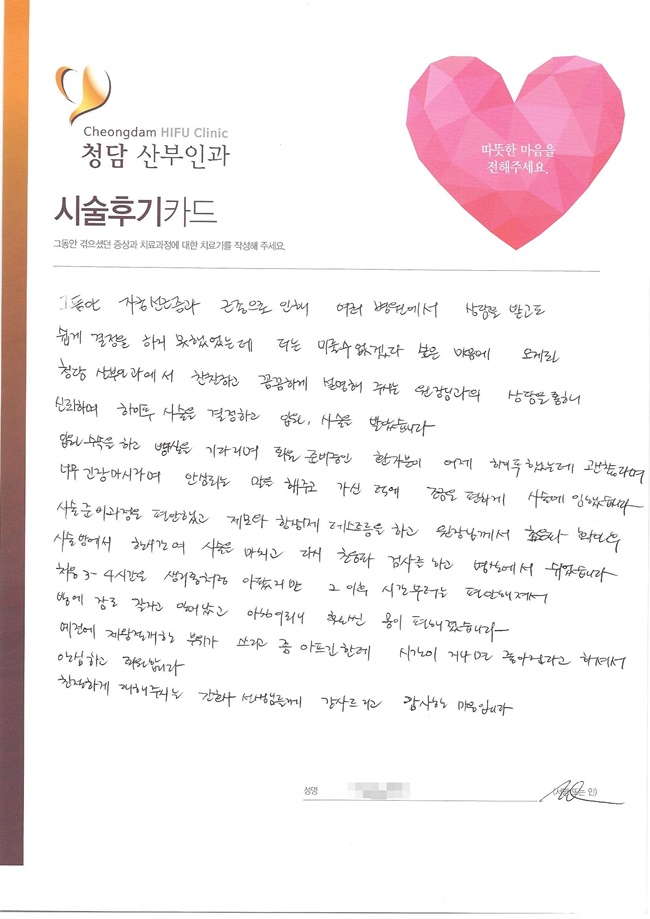 Cheongdam HIFU Clinic
청담 산부인과
따뜻한 마음을
전해주세요.
시술후기카드
그동안 겪으셨던 증상과 치료과정에 대한 치료기를 작성해 주세요.
그동안 자궁선근증과 근종으로 인해 여러 병원에서 상담을 받고도
쉽게 결정을 하지 못했었는데 더는 미룰수 없겠다 싶은 마음에 오게된
청담 산부인과에서 찬찬하고 꼼꼼하게 설명해 주시는 원장님과의 상담을 통해
신뢰하며 하이푸 시술을 결정하고 입원, 시술을 받았습니다
입원 수속을 하고 병실을 기다리며 퇴원 준비중인 환자분이 어제 하이푸 했었는데 괜찮다며
너무 긴장마시라며 안심되는 말을 해주고 가신 덕에 조금은 편하게 시술에 임했습니다
시술 준비과정은 편안했고 제모와 관장 하고 원장님께서
시술방에서 한시간여 시술을 마치고 다시 검사를 하고 병실에서 쉬었습니다
처음 3-4시간은 생리통처럼 아팠지만 그 이후 시간부터는 편안해져서
밤에 잠도 잘자고 일어났고 아침이되니 훨씬 몸이 편해졌습니다
예전에 제왕절개한 부위가 쓰리고 좀 아프긴한데 시간이 지나면 좋아진다고 하셔서
안심하고 퇴원합니다
친절하게 대해주시는 간호사 선생님들께 감사드리고 감사한 마음입니다
성명
(서명 또는 인)